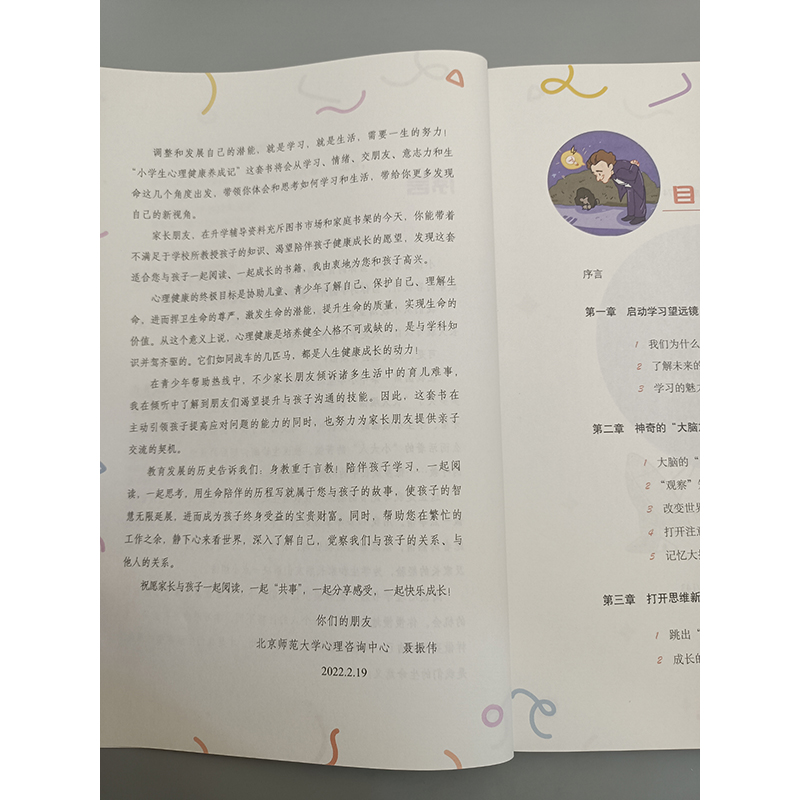 调整和发展自己的潜能，就是学习，就是生活，需要一生的努力！
“小学生心理健康养成记”这套书将会从学习、情绪、交朋友、意志力和生
命这几个角度出发，带领你体会和思考如何学习和生活，带给你更多发现
自己的新视角。
家长朋友，在升学辅导资料充斥图书市场和家庭书架的今天，你能带着
不满足于学校所教授孩子的知识、渴望陪伴孩子健康成长的愿望，发现这套
适合您与孩子一起阅读、一起成长的书籍，我由衷地为您和孩子高兴。
心理健康的终极目标是协助儿童、青少年了解自己、保护自己、理解生
命。进而捍卫生命的尊严，激发生命的潜能，提升生命的质量，实现生命的
价值。从这个意义上说，心理健康是培养健全人格不可或缺的，是与学科知
识并驾齐驱的。它们如同战车的几匹马，都是人生健康成长的动力！
在青少年帮助热线中，不少家长朋友倾诉诸多生活中的育儿难事，
我在倾听中了解到朋友们渴望提升与孩子沟通的技能。因此，这套书在
主动引领孩子提高应对问题的能力的同时，也努力为家长朋友提供亲子
交流的契机。
教育发展的历史告诉我们：身教重于言教！陪伴孩子学习，一起阅
读，一起思考，用生命陪伴的历程写就属于您与孩子的故事，使孩子的智
慧无限延展，进而成为孩子终身受益的宝贵财富。同时，帮助您在繁忙的
工作之余，静下心来看世界，深入了解自己，觉察我们与孩子的关系、与
他人的关系。
祝愿家长与孩子一起阅读，一起“共事”，一起分享感受，一起快乐成长！
你们的朋友
北京师范大学心理咨询中心 聂振伟
2022.2.19
目
序言
第一章 启动学习望远镜
1 我们为什么
2 了解未来的
3 学习的魅力
第二章 神奇的“大脑
1 大脑的“
2 “观察”
3 改变世界
4 打开注意
5 记忆大
第三章 打开思维新
1 跳出“
2 成长的